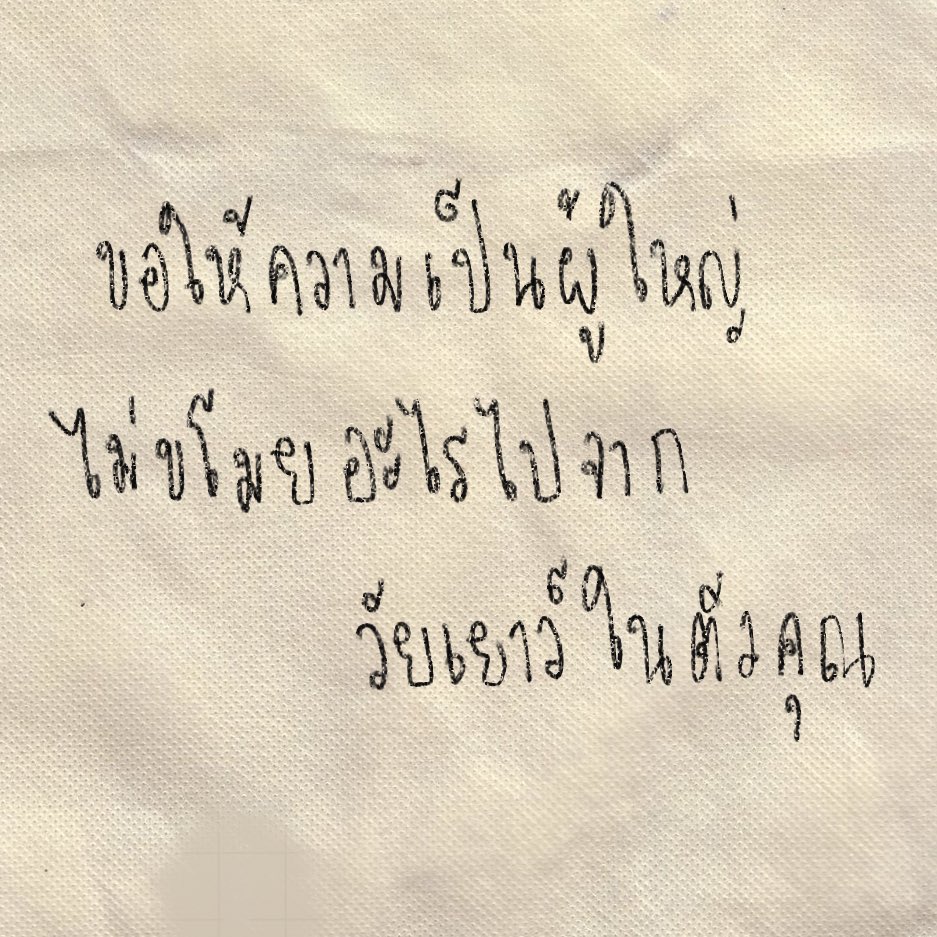 ขอให้ความเป็นผู้ใหญ่
ไม่ขโมยอะไรไปจาก
วัยเยาว์ในตัวคุณ